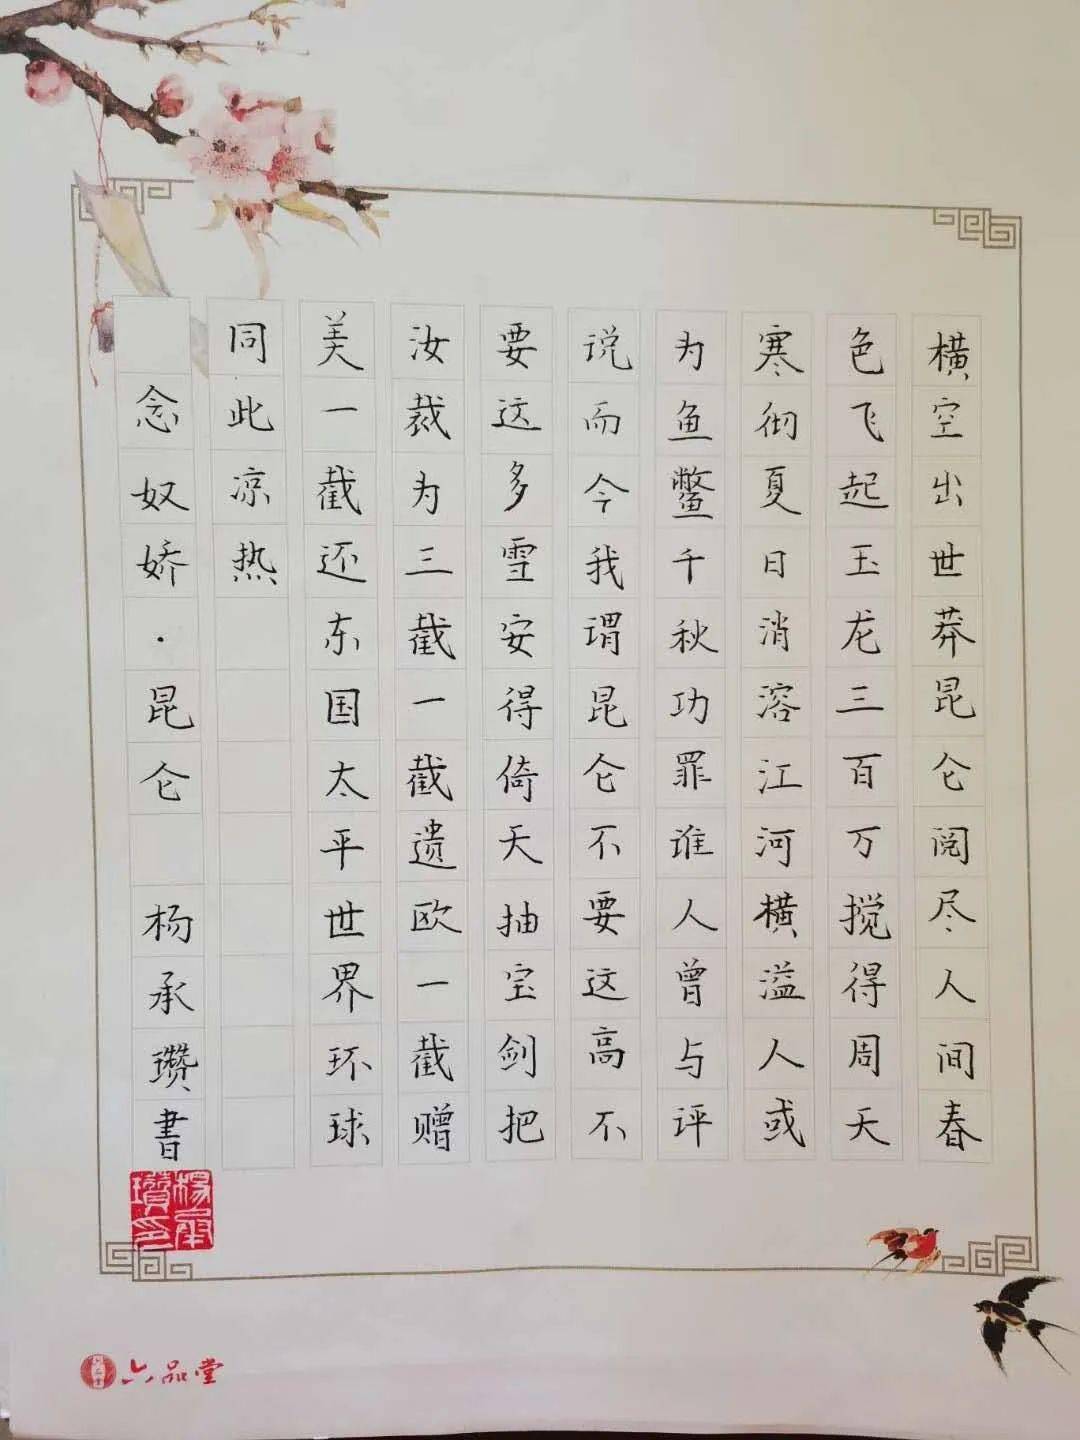 横空出世莽昆仑阅尽人间春
色飞起玉龙三百万搅得周天
寒彻夏日消溶江河横溢人或
为鱼鳖千秋功罪谁人曾与评
说而今我谓昆仑不要这高不
要这多雪安得倚天抽宝剑把
汝裁为三截一截遗欧一截赠
美一截还东国太平世界环球
同此凉热
念奴娇·昆仑 杨承瓒書
杨承瓒印
六品堂